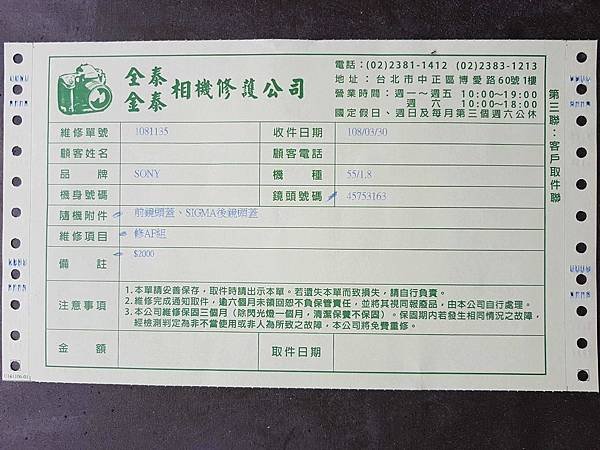 全泰
金泰
相機修護公司
電話：(02)2381-1412 (02)2383-1213
地址：台北市中正區博愛路60號1樓
營業時間：週一～週五 10:00～19:00
週六 10:00～18:00
國定假日、週日及每月第三個週六公休
維修單號 1081135 收件日期 108/03/30
顧客姓名 顧客電話
品牌 SONY 機種 55/1.8
機身號碼 鏡頭號碼 45753163
隨機附件 前鏡頭蓋、SIGMA後鏡頭蓋
維修項目 修AF組
備註 $2000
注意事項
1.本單請妥善保存，取件時請出示本單。若遺失本單而致損失，請自行負責。
2.維修完成通知取件，逾六個月未領回恕不負保管責任，並將其視同報廢品，由本公司自行處理。
3.本公司維修保固三個月（除閃光燈一個月，清潔保養不保固）。保固期內若發生相同情況之故障，
經檢測判定為非不當使用或非人為所致之故障，本公司將免費重修。
金額 取件日期
第三聯：客戶取件聯